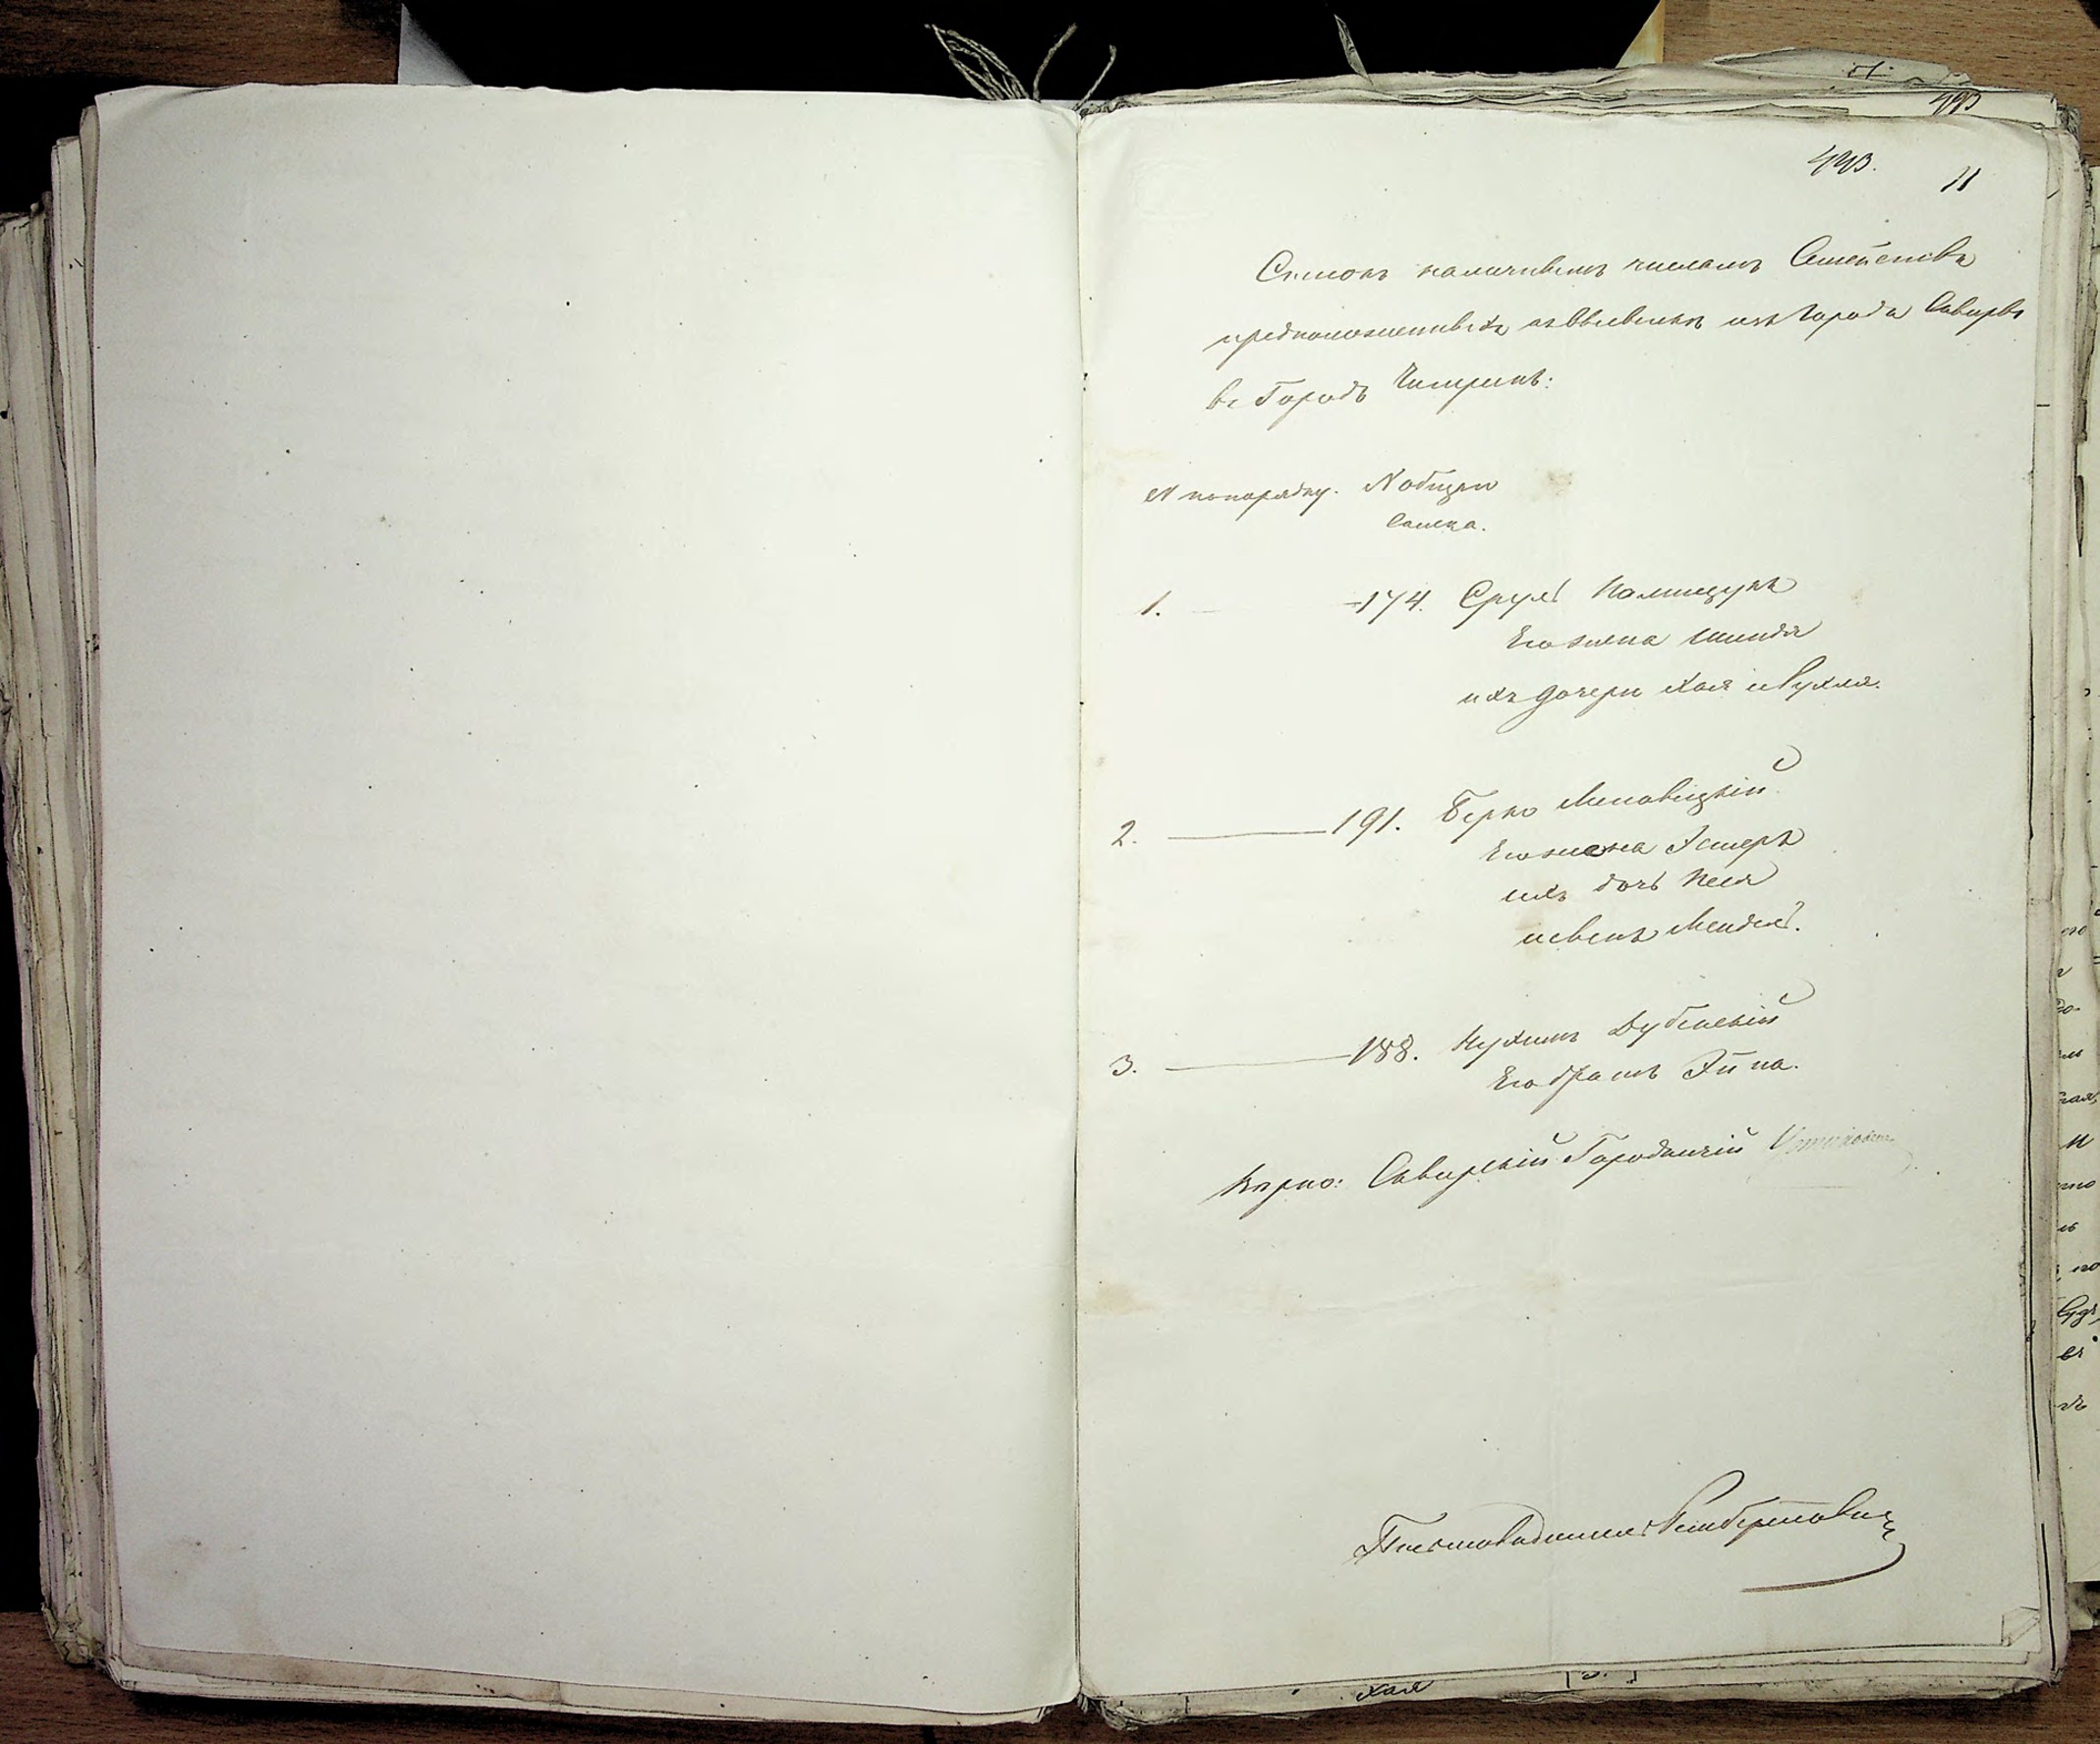 493.
11
Списокъ наличнымъ числомъ Семействъ
предположенныхъ къ высылкъ изъ Города Сквиры
въ Городъ Чигиринъ:
№ по порядку. № общаго
списка.
1. 174. Сруль Полищукъ
Его жена Шиндя
ихъ дочери Хая и Рухля.
2. 191. Берко Липовецкій
Его жена Эстеръ
ихъ дочь Неся
и сынъ Мендель.
3. 188. Нухимъ Дубенскій
Его братъ Эйна.
Вѣрно: Сквирскій Городничій
Письмоводитель
хая